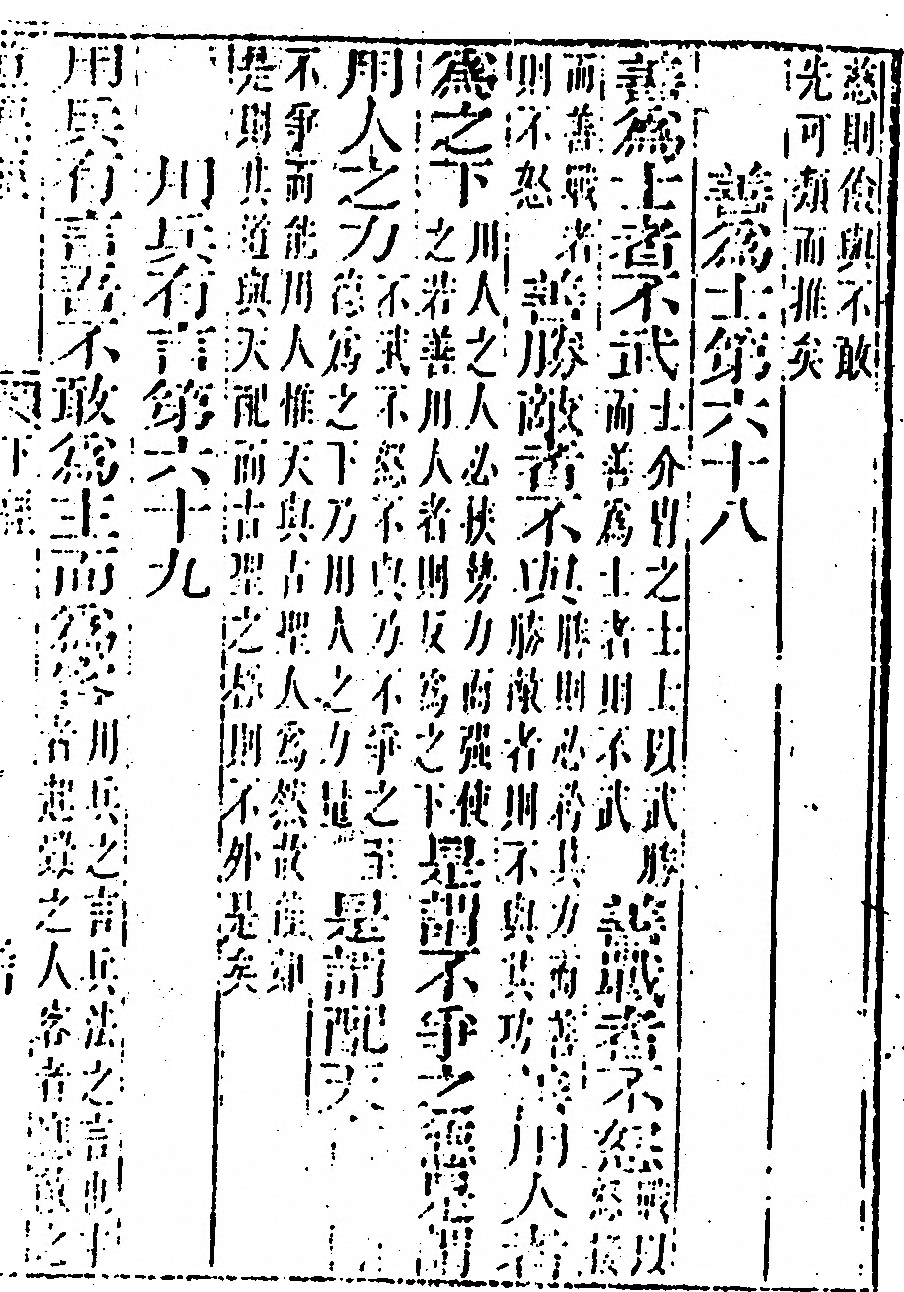 慈則儉與不敢
先可類而推矣
善為士第六十八
善為士者不武士介胄之士士以武勝
而善為士者則不武善戰者不怒戰以怒
而善戰者
則不怒善勝敵者不與勝則必矜其力而善
勝敵者則不與其功善用人者
為之下用人之人必挾勢力而強使
之若善用人者則反為之下是謂不爭之德是謂
用人之力不武不怒不與乃不爭之
德為之下乃用人之力是謂配天
不爭而能用人惟天與古聖人為然故
是則其道與天配而古聖之極則不外是矣
用兵有言第六十九
用兵有言吾不敢為主而為客用兵之言兵法之言也主
者起難之人客者應敵之
下經